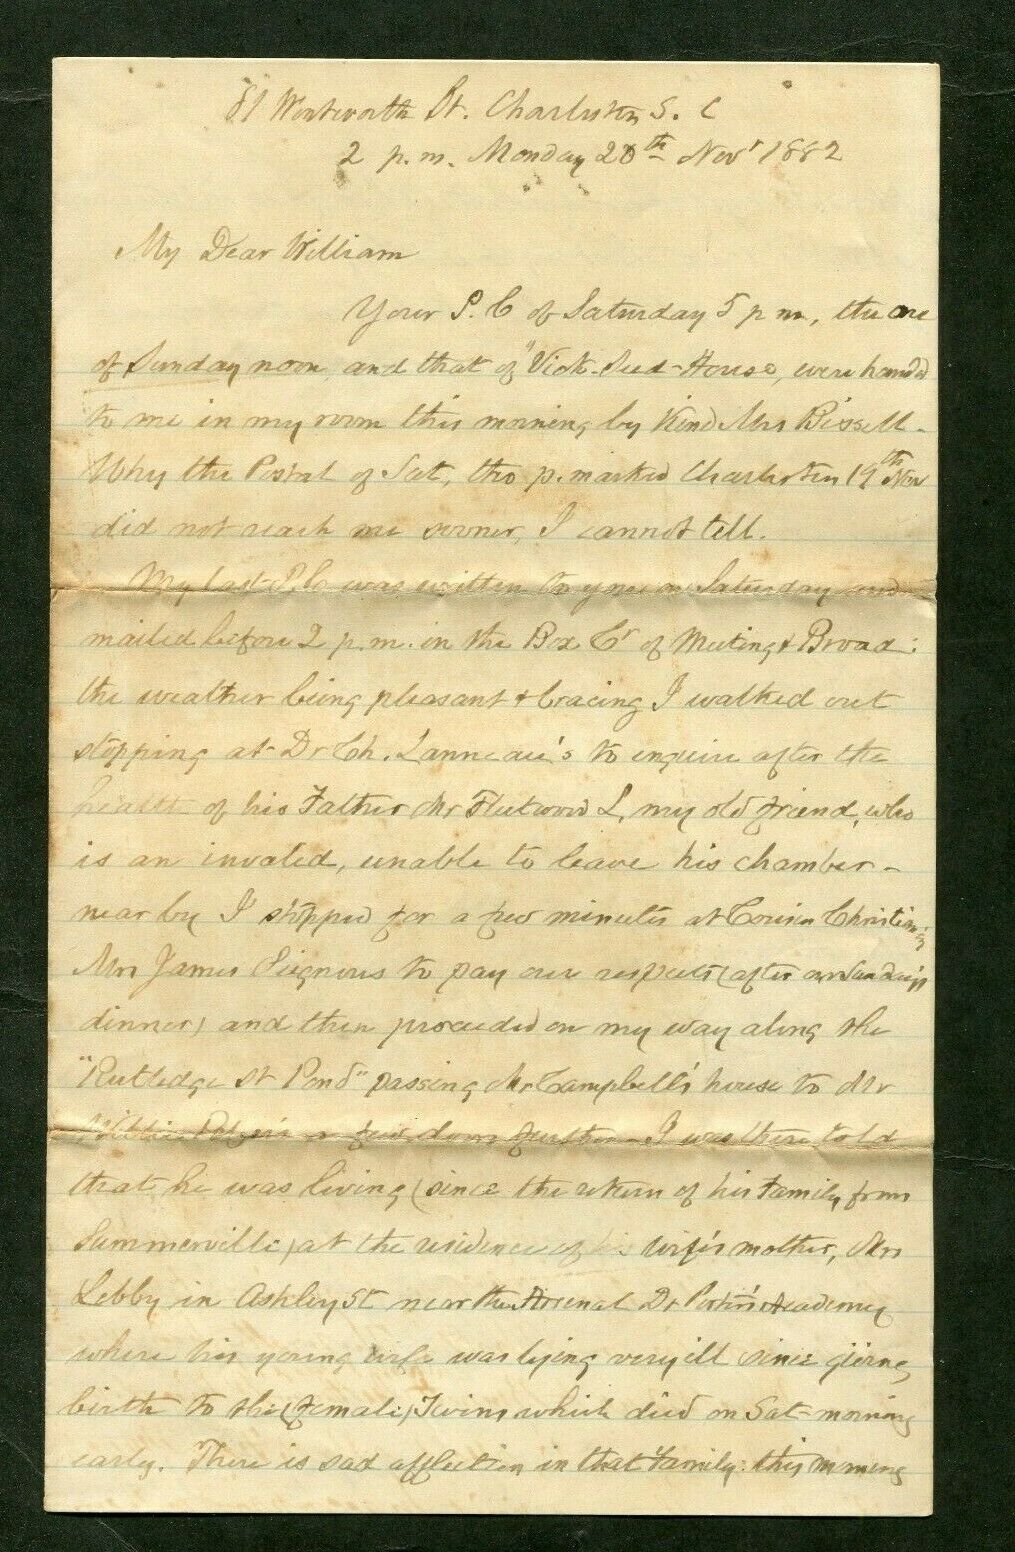 81 Wentworth St. Charleston S. C
2 p. m. Monday 20th Novr 1882
My Dear William
Your P. C of Saturday 5 p m, the one
of Sunday noon, and that of "Vick-Seed-House, were handed
to me in my room this morning by kind Mrs Bissell-
Why the Postal of Sat, tho p. marked Charleston 19th Nov
did not reach me sooner, I cannot tell.
My last P. C. was written to you on Saturday and
mailed before 2 p. m. in the Box Cr of Meeting & Broad:
the weather being pleasant & bracing I walked out
stopping at Dr Ch. Lanneau's to enquire after the
health of his Father Mr Fleetwood L, my old friend, who
is an invaled, unable to leave his chamber-
near by I stopped for a few minutes at Cousin
Mrs James Signious to pay our respects (after our Sunday's
dinner) and then proceeded on my way along the
"Rutledge St Pond" passing Mr Campbell's house to Mr
a few doors further - I was there told
that he was living (since the return of his family from
Summerville) at the residence of his wife's mother, Mrs
Lebby in Ashley St near the Arsenal Dr Porter's Academy
where his young wife was lying very ill since giving
birth to the (female) Twins which died on Sat- morning
early. There is sad affliction in that family: this morning